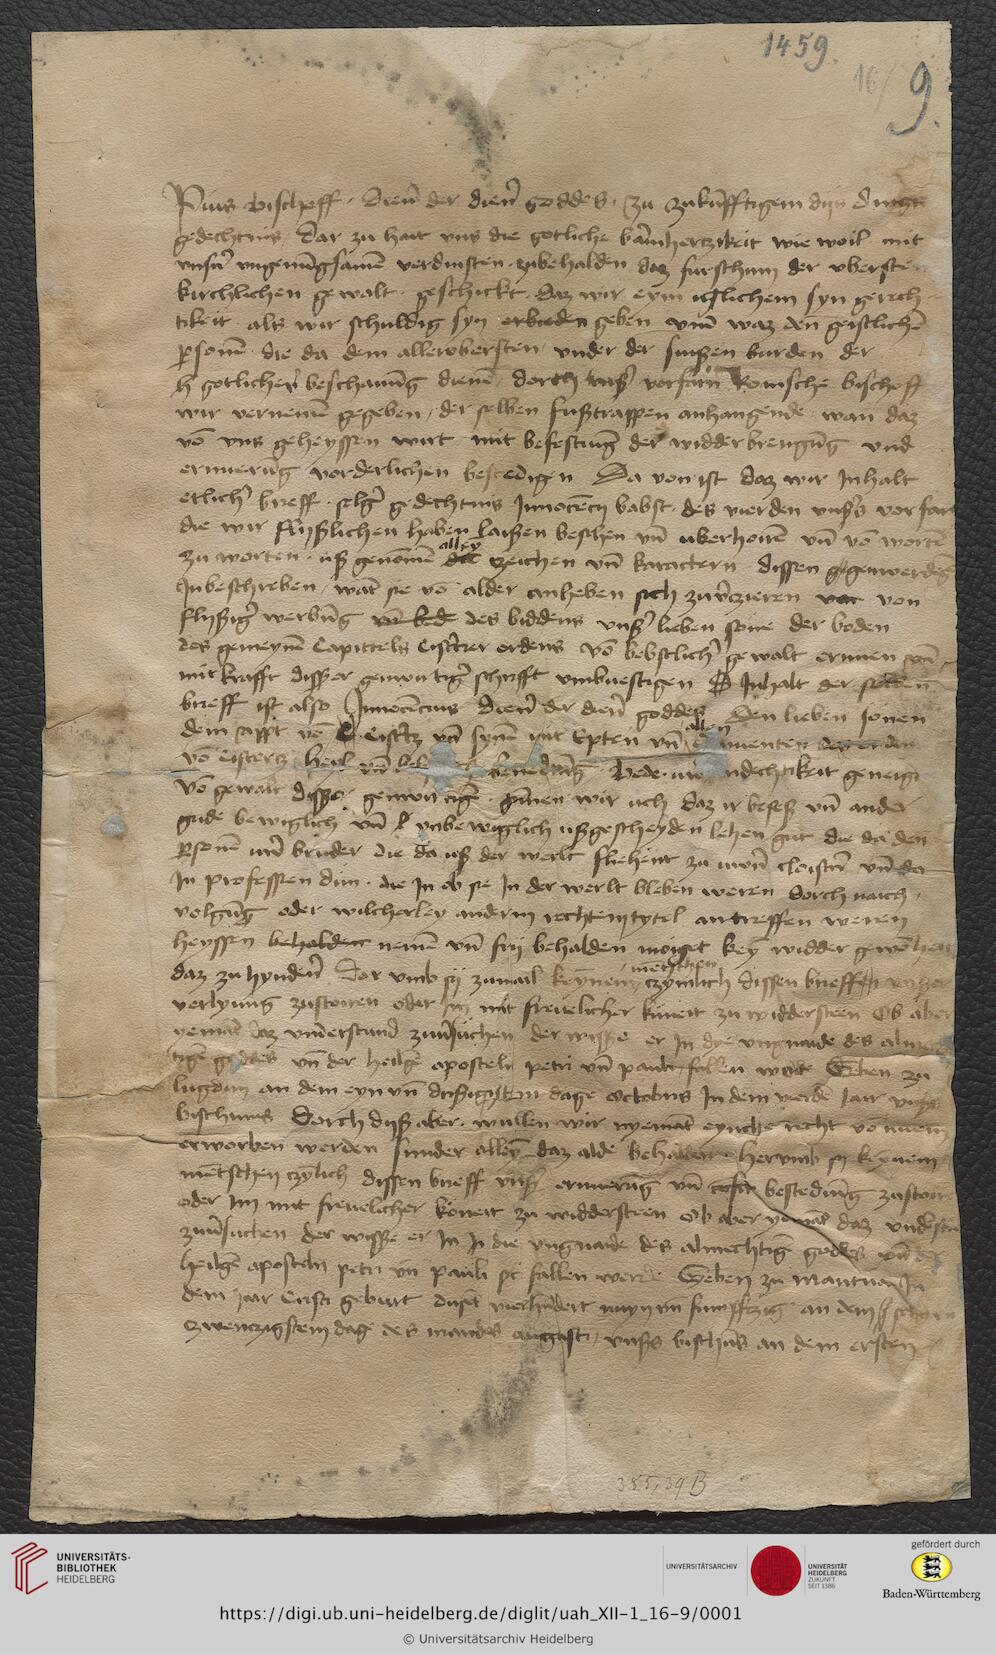 1459.
16/ 9.
Pius bischoff . diener der diener goddes . zu zukunfftigem
gedechtnis / dar zu hait vns die gotliche barmhertzikeit wie woil mit
vnser vngenugsamen verdinsten . zubehalden daz furstthum der vbersten
kirchlichen gewalt . geschickt . daz wir eym iclichem syn gerech
tikeit . als wir schuldig syn erbieden geben vnd waz den geistlichen
personen . die da dem allerobersten vnder der sussen burden der
gotlicher beschauung dienen . dorch vnser vorfarn Romsche bischoff
wir vernemen gegeben / der selben fußtrappen anhangende . wan daz
von vns geheyssen wirt mit befestung der widderbrengung vnd
ernuerung vorderlichen bestedigen Da von ist daz wir Inhalt
etlicher brieff . selger gedechtnis Innocency babst . des vierden vnsers vorfarn
die wir flyßlichen haben laißen besehen vnd uberhoiren vnd von worten
zu worten . uß genomen alley zeichen vnd karactern . dissen gegenwerdigen
Inbeschrieben / wan sie von alder anheben sich zuverzieren von
flyßiger werbung des biddens vnser lieben sone der boden
des gemeynen Capittels Cistercer ordens von bebstlicher gewalt ernuen vnd
mit krafft disser genwurtiger schrifft vmbuestigen Inhalt der selben
brieff ist also Innocencius diener der diener goddes Den lieben sonen
dem appt von Cistercz vnd synen mit Epten vnd allen conuenten des orden
von Cistercz / heil vnd benedung . andechtikeit geneigt
von gewalt disser genwurtigen . gunnen wir uch daz ir besess vnd ander
gude bewiglich vnd vnbewiglich ußgescheyden lehen gut die da den
personen uwer bruder die da uß der werlt fliehent zu uwern cloistern vnd da
In professen dun . die In ob sie In der werlt bleben weren dorch naich
volgung oder wilcherley anderm rechtem tytel antreffen weren
heyssen behalden nemen vnd fry behalden moiget keyn widder gewonheit
daz zu hyndern Dar vmb sij zumail keynem metschen czymlich dissen brieff
verlyung zustoiren oder Im mit freuelicher kuneit zu widdersteen Ob aber
yemant daz vnderstund zuuersuchen der wisse er In dye vngnade des almech
tigen goddes vnd der heilgen aposteln petri vnd pauli fallen werde Geben zu
lugdun an dem eyn vnd drißigsten dage Octobris In dem vierden Jair vnsers
bischtums Dorch diß aber . wullen wir nyemant eynche recht von nuem
erworben werden sunder alleyn daz alde behalden . hervmb sij keynem
metschen czylich dissen brieff vnser ernuerung vnd bestedung zustoiren
oder Im mit freuelicher koneit zu widdersteen Ob aber yemant daz vnderstund
zuuersuchen der wisse er In die vngnade des almechtigen goddes vnd der
heilgen aposteln petri vnd pauli fallen werde Geben zu mantua In
dem Jaar Cristi geburt dusent vierhundert nuyn vnd funffczig an dem
zwenczigstem dage des maendes augusti / vnsers bischtums an dem ersten
355,39 B
UNIVERSITÄTS-
BIBLIOTHEK
HEIDELBERG
UNIVERSITÄTSARCHIV
UNIVERSITÄT
HEIDELBERG
ZUKUNFT
SEIT 1386
gefördert durch
Baden-Württemberg
https://digi.ub.uni-heidelberg.de/diglit/uah_XII-1_16-9/0001
© Universitätsarchiv Heidelberg